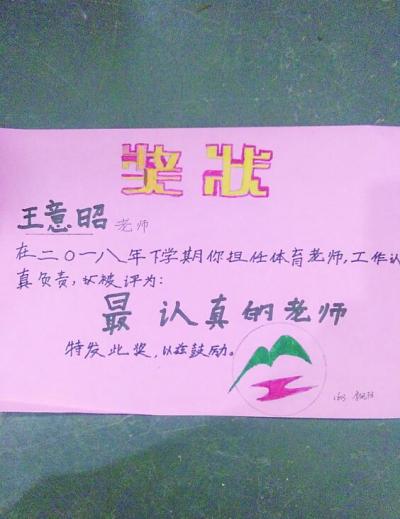 奖状
王意昭 老师
在二〇一八年下学期你担任体育老师,工作认
真负责,被评为:
最 认真的老师
特发此奖,以兹鼓励。